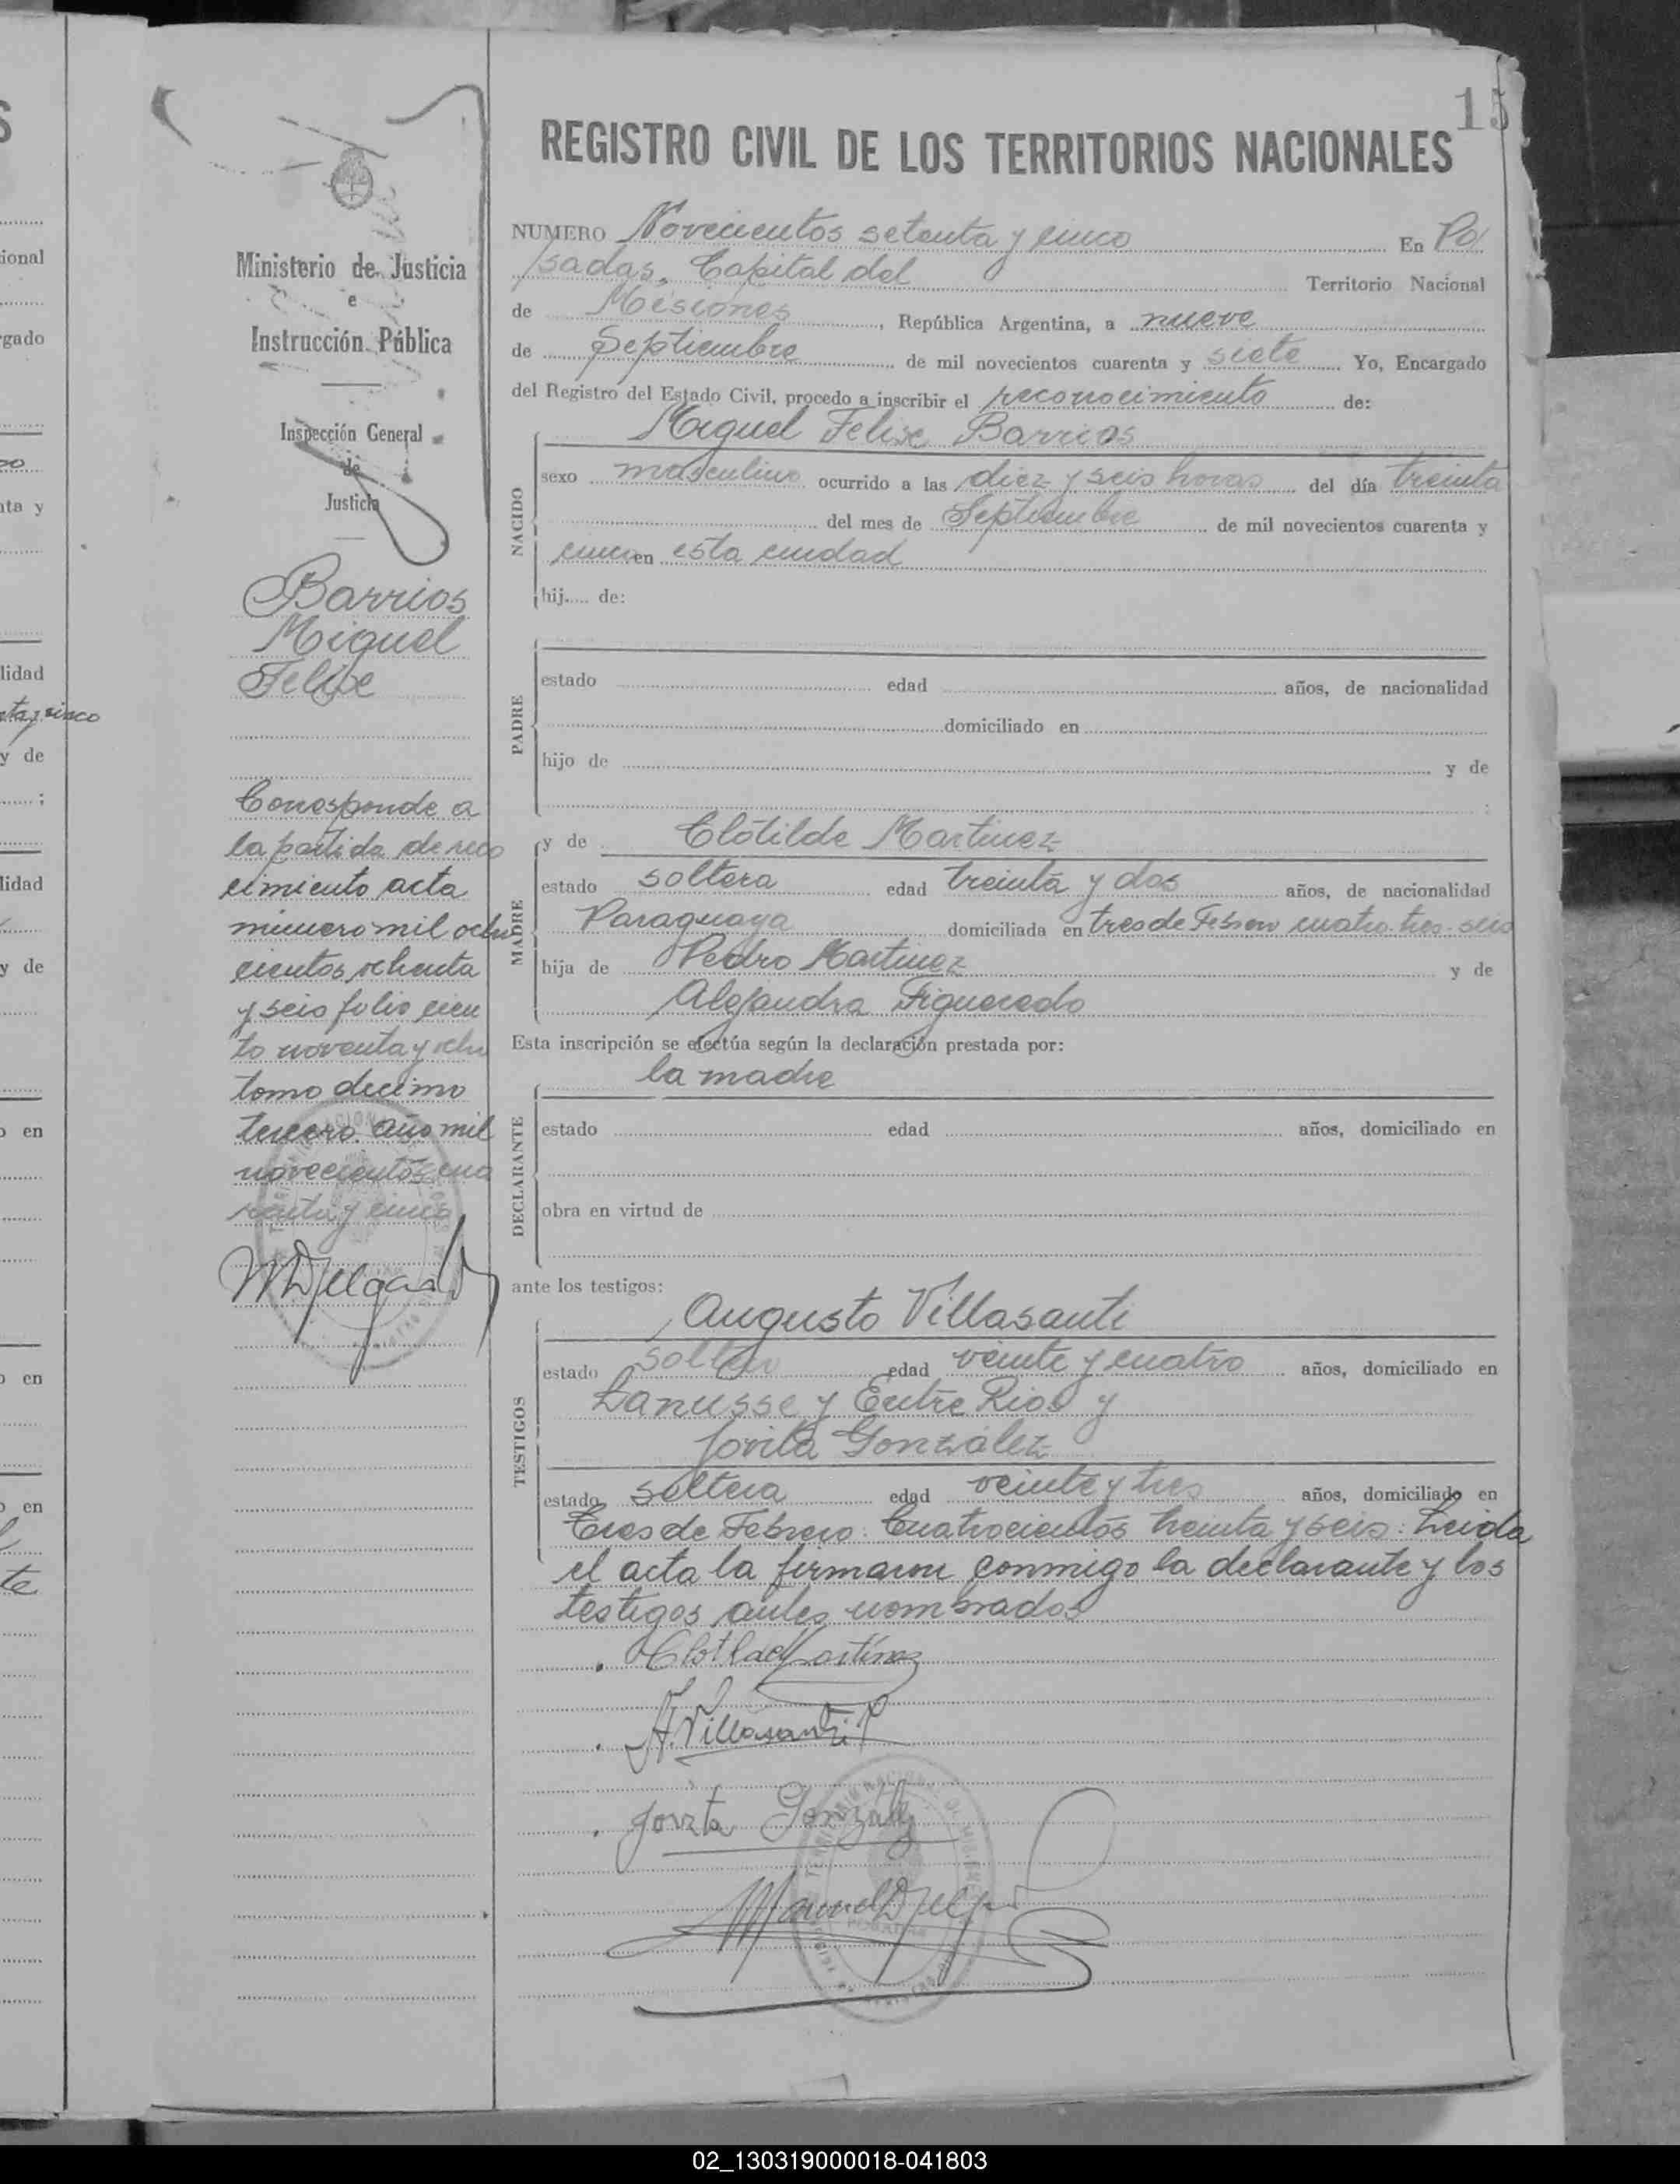 15
REGISTRO CIVIL DE LOS TERRITORIOS NACIONALES
Ministerio de Justicia
e
Instrucción Pública
Inspección General
de
Justicia
Barrios
Miguel
Felipe
Corresponde a
la partida de reco
cimiento acta
número mil ocho
cientos ochenta
y seis folio cien
to noventa y ocho
tomo decimo
tercero año mil
novecientos cua
renta y cinco
NUMERO Novecientos setenta y cinco En Po/
/sadas, Capital del Territorio Nacional
de Misiones, República Argentina, a nueve
de Septiembre de mil novecientos cuarenta y siete Yo, Encargado
del Registro del Estado Civil, procedo a inscribir el reconocimiento de:
Miguel Felipe Barrios
NACIDO
sexo masculino ocurrido a las diez y seis horas del día treinta
del mes de Septiembre de mil novecientos cuarenta y
cinco en esta ciudad
hij..... de:
PADRE
estado edad años, de nacionalidad
domiciliado en
hijo de y de
MADRE
y de Clotilde Martinez
estado soltera edad treinta y dos años, de nacionalidad
Paraguaya domiciliada en tres de Febrero cuatro tres seis
hija de Pedro Martinez y de
Alejandra Figueredo
Esta inscripción se efectúa según la declaración prestada por:
la madre
DECLARANTE
estado edad años, domiciliado en
obra en virtud de
ante los testigos:
TESTIGOS
Augusto Villasanti
estado soltero edad veinte y cuatro años, domiciliado en
Lanusse y Entre Rios y
Jovita González
estado soltera edad veinte y tres años, domiciliado en
Tres de Febrero Cuatrocientos treinta y seis: Leida
el acta la firmaron conmigo la declarante y los
testigos antes nombrados
Clotilde Martínez
A. Villasanti
Jovita González
02_130319000018-041803